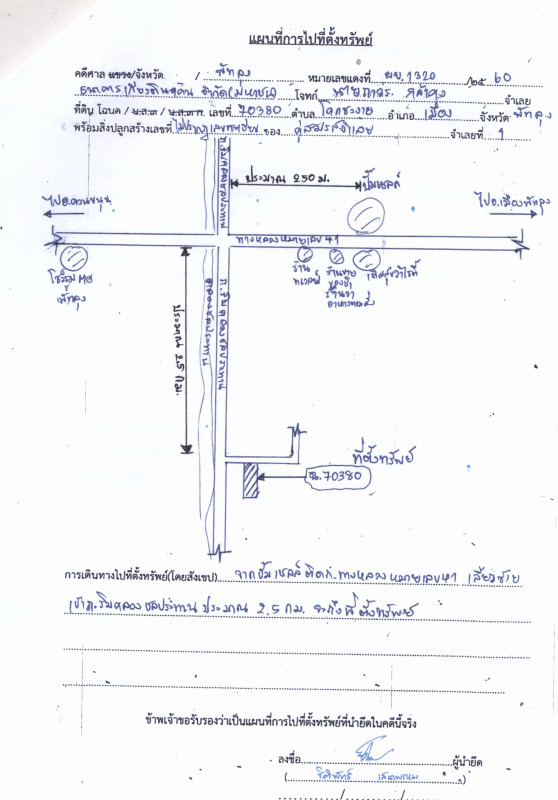 แผนที่การไปที่ตั้งทรัพย์
คดีศาล แขวง/จังหวัด / พัทลุง หมายเลขแดงที่ ผบ.1320 /๒๕ 60
ธนาคารเกียรตินาคิน จำกัด (มหาชน) โจทก์ จำเลย
ที่ดิน โฉนด / น.ส.๓ / น.ส.๓ ก. เลขที่ 70380 ตำบล โคกชะงาย อำเภอ เมือง จังหวัด พัทลุง
พร้อมสิ่งปลูกสร้างเลขที่ ไม่ปรากฏเลขทะเบียน ของ คู่สมรสจำเลย จำเลยที่ 1
ถ.ริมคลองชลประทาน
ประมาณ 250 ม.
ปั๊มเชลล์
ไป อ.ควนขนุน
ไป อ.เมืองพัทลุง
ทางหลวงหมายเลข 41
โชว์รูม MG พัทลุง
ร้าน
ร้านขายของชำ
ร้าน
ประมาณ 2.5 กม.
คลองชลประทาน
ถ.ริมคลองชลประทาน
ที่ตั้งทรัพย์
ฉ.70380
การเดินทางไปที่ตั้งทรัพย์(โดยสังเขป) จากปั้มเชลล์ติดถ.ทางหลวงหมายเลข 41 เลี้ยวซ้าย
เข้าถ.ริมคลองชลประทาน ประมาณ 2.5 กม. จะถึงที่ตั้งทรัพย์
ข้าพเจ้าขอรับรองว่าเป็นแผนที่การไปที่ตั้งทรัพย์ที่นำยึดในคดีนี้จริง
ลงชื่อ ผู้นำยึด
( )
/ /